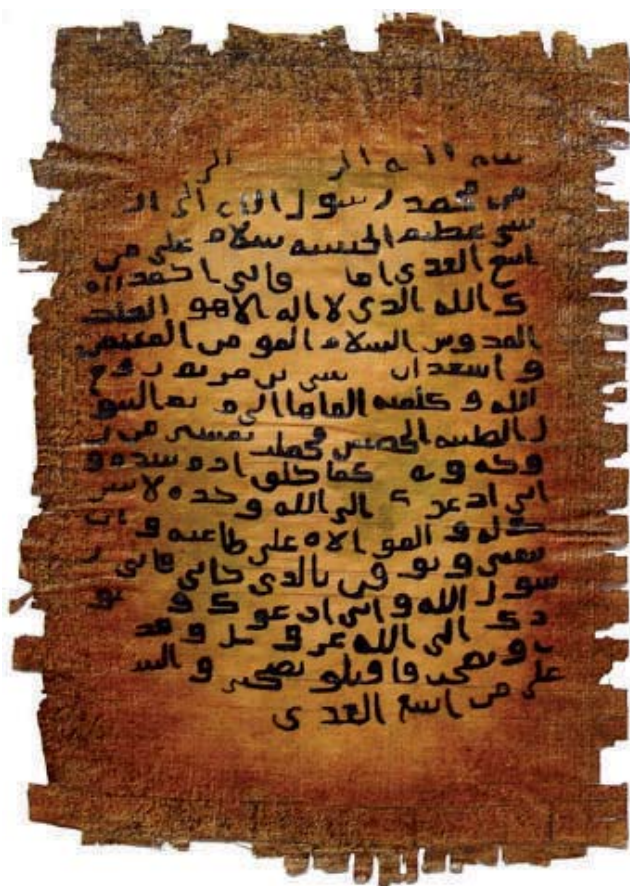 بسم الله الر الر
من محمد رسول الله الى الن
شى عظيم الحبشه سلام على من
اتبع الهدى اما فانى احمد اليه
ك الله الذى لا اله الا هو الملك
القدوس السلام المومن المهيمن
و اشهد ان سى بن مريم روح
الله و كلمته القاها الى م يم البتو
ل الطيبه الحصينه فحملت بعيسى من ر
وحه و ه كما خلق ادم بيده و
انى ادعو ك الى الله وحده لا شر
ك له و الموالاه على طاعته و ان
تتبعنى و تو من بالذى جانى فانى ر
سول الله و انى ادعوك و نو
دك الى الله عز و جل و قد
و نصحت فاقبلو نصيحتى و الس
على من اتبع الهدى